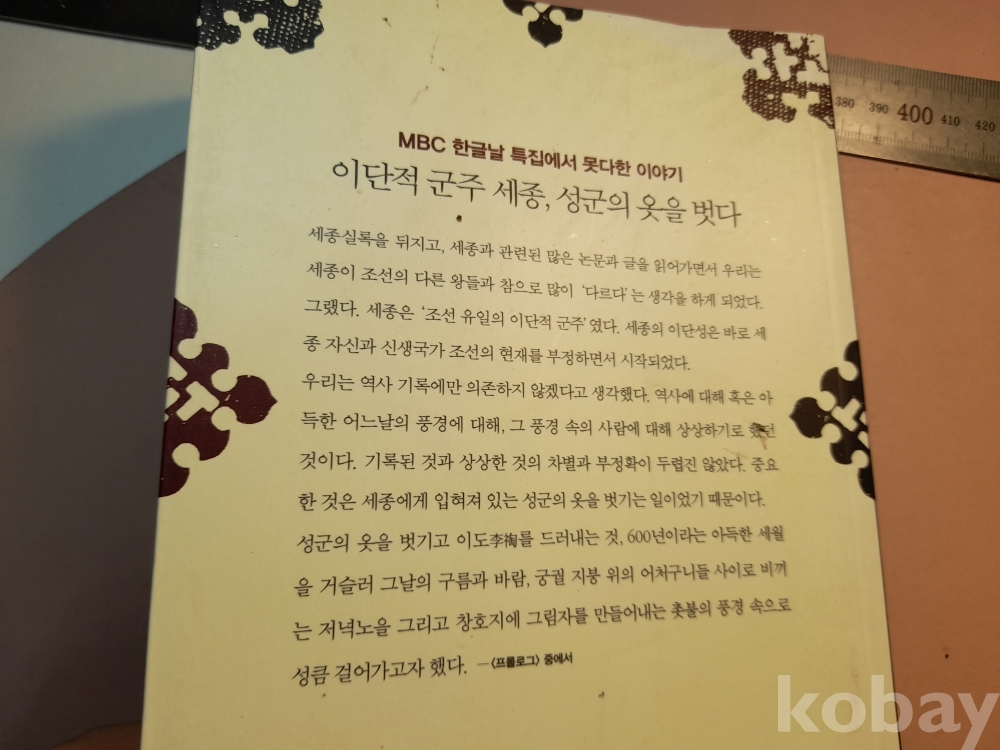 MBC 한글날 특집에서 못다한 이야기
이단적 군주 세종, 성군의 옷을 벗다
세종실록을 뒤지고, 세종과 관련된 많은 논문과 글을 읽어가면서 우리는
세종이 조선의 다른 왕들과 참으로 많이 '다르다'는 생각을 하게 되었다.
그랬다. 세종은 '조선 유일의 이단적 군주'였다. 세종의 이단성은 바로 세
종 자신과 신생국가 조선의 현재를 부정하면서 시작되었다.
우리는 역사 기록에만 의존하지 않겠다고 생각했다. 역사에 대해 혹은 아
득한 어느날의 풍경에 대해, 그 풍경 속의 사람에 대해 상상하기로 했던
것이다. 기록된 것과 상상한 것의 차별과 부정확이 두렵진 않았다. 중요
한 것은 세종에게 입혀져 있는 성군의 옷을 벗기는 일이었기 때문이다.
성군의 옷을 벗기고 이도李祹를 드러내는 것, 600년이라는 아득한 세월
을 거슬러 그날의 구름과 바람, 궁궐 지붕 위의 어처구니들 사이로 비껴
는 저녁노을 그리고 창호지에 그림자를 만들어내는 촛불의 풍경 속으로
성큼 걸어가고자 했다. —〈프롤로그〉 중에서
380 390 400 410 420
kobay